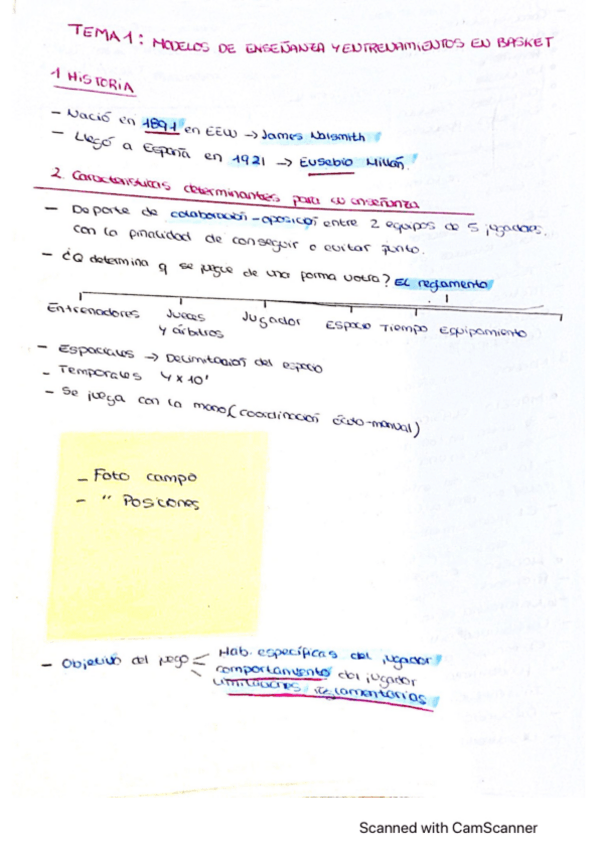 TEMA 1: MODELOS DE ENSEÑANZA Y ENTRENAMIENTOS EN BASKET
1 HISTORIA
- Nació en 1891 en EEUU → James Naismith
- Llegó a España en 1921 → Eusebio Millán.
2. Características determinantes para su enseñanza
- Deporte de colaboración-oposición entre 2 equipos de 5 jugadores,
con la finalidad de conseguir o evitar punto.
- ¿Q determina q se juegue de una forma u otra? EL reglamento
Entrenadores Jueces y árbitros Jugador Espacio Tiempo Equipamiento
- Espaciales → Delimitación del espacio
- Temporales 4 x 10'
- Se juega con la mano (coordinación óculo-manual)
- Foto campo
- " Posiciones
- Objetivo del juego
Hab. específicas del jugador
comportamiento del jugador
Limitaciones reglamentarias
Scanned with CamScanner